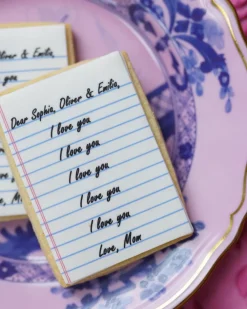 Oliver & Emilia,
you
you
Dear Sophia, Oliver & Emilia,
I love you
I love you
I love you
I love you
I love you
Love, Mom